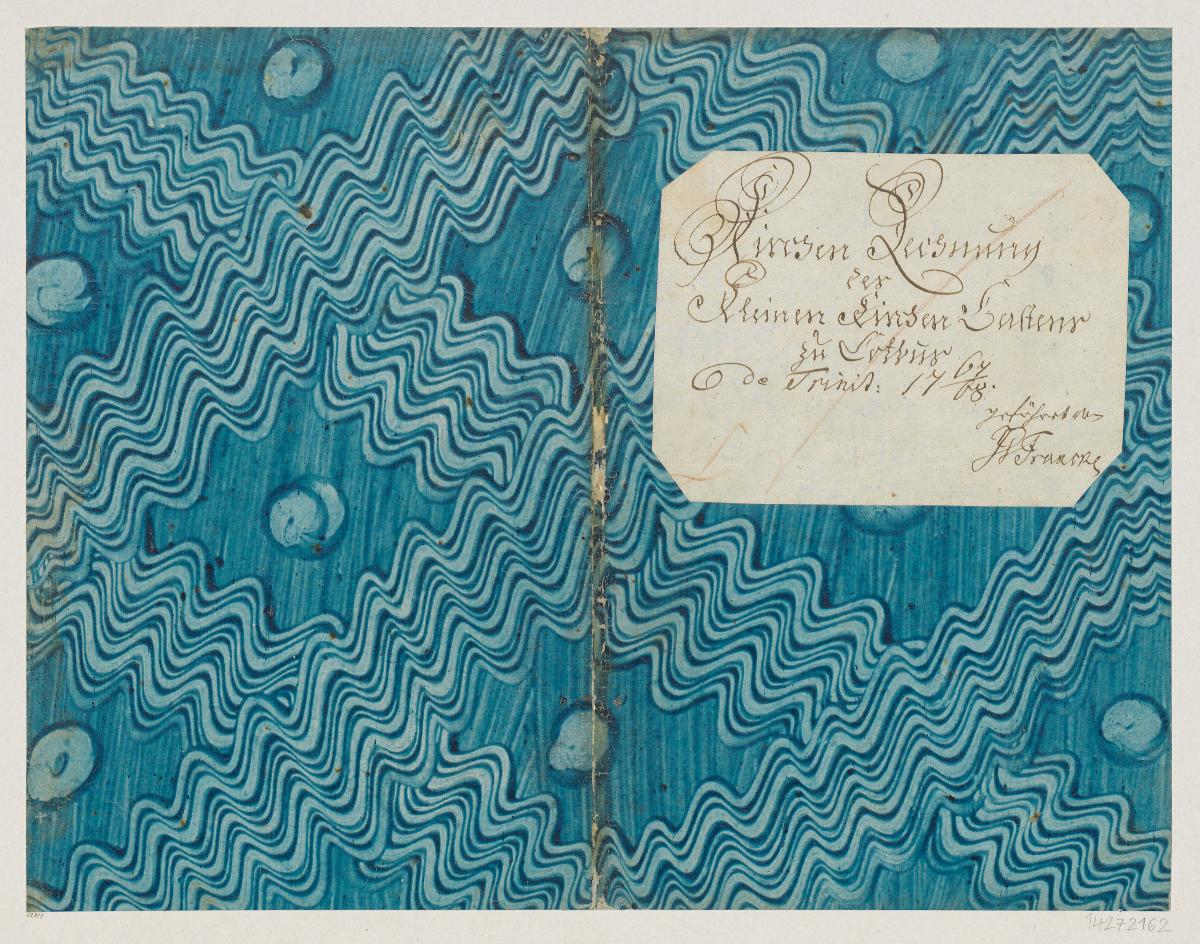 Kirchen Rechnung
des
Kleinen Kirchen Castens
zu Cottbus
de Trinit: 17 67/68.
geführet von
Francke
14272162